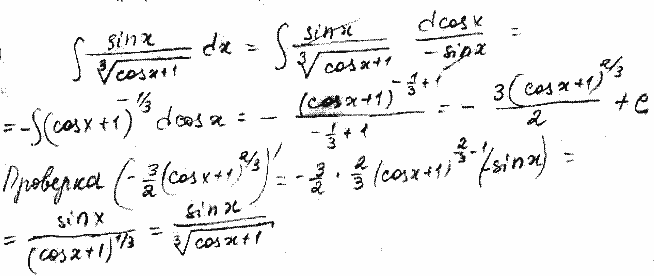 ∫ sinx / ∛(cosx+1) dx = ∫ sinx / ∛(cosx+1) · dcosx / (-sinx) =
= -∫(cosx+1)^(-1/3) dcosx = - (cosx+1)^(-1/3+1) / (-1/3+1) = - 3(cosx+1)^(2/3) / 2 + C
Проверка (-3/2 (cosx+1)^(2/3))' = -3/2 · 2/3 (cosx+1)^(2/3-1) (-sinx) =
= sinx / (cosx+1)^(1/3) = sinx / ∛(cosx+1)